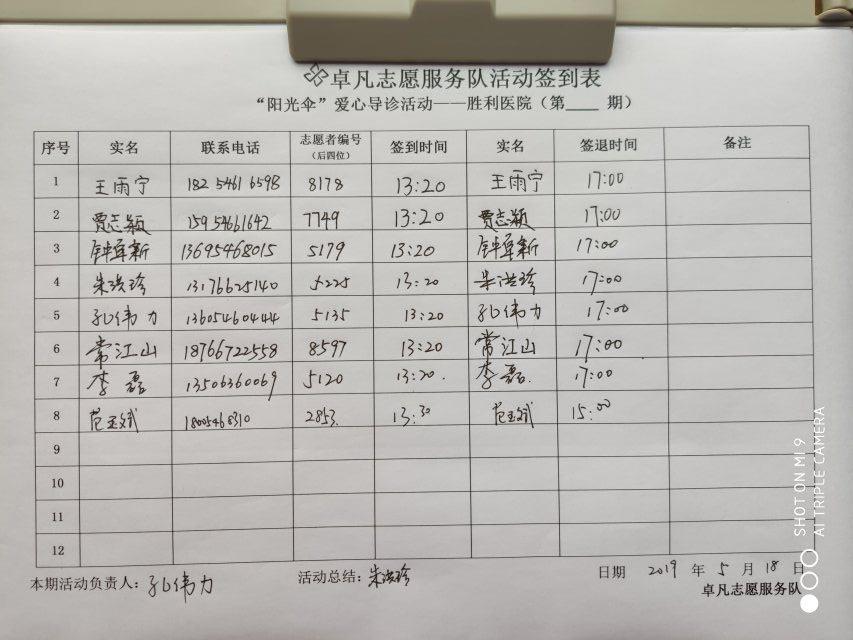 卓凡志愿服务队活动签到表
“阳光伞”爱心导诊活动——胜利医院（第____期）
序号 实名 联系电话 志愿者编号（后四位） 签到时间 实名 签退时间 备注
1 王雨宁 182 5461 6598 8178 13:20 王雨宁 17:00
2 贾志颖 159 54661642 7749 13:20 贾志颖 17:00
3 13695468015 5179 13:20 17:00
4 朱洪珍 13176625140 5225 13:20 朱洪珍 17:00
5 孔伟力 13605460444 5135 13:20 孔伟力 17:00
6 常江山 18766722558 8597 13:20 常江山 17:00
7 李磊 13506360069 5120 13:20. 李磊. 17:00
8 范玉斌 2853. 13:30 范玉斌 15:00
9
10
11
12
本期活动负责人：孔伟力 活动总结：朱洪珍 日期 2019 年 5 月 18 日
卓凡志愿服务队
SHOT ON MI 9
AI TRIPLE CAMERA